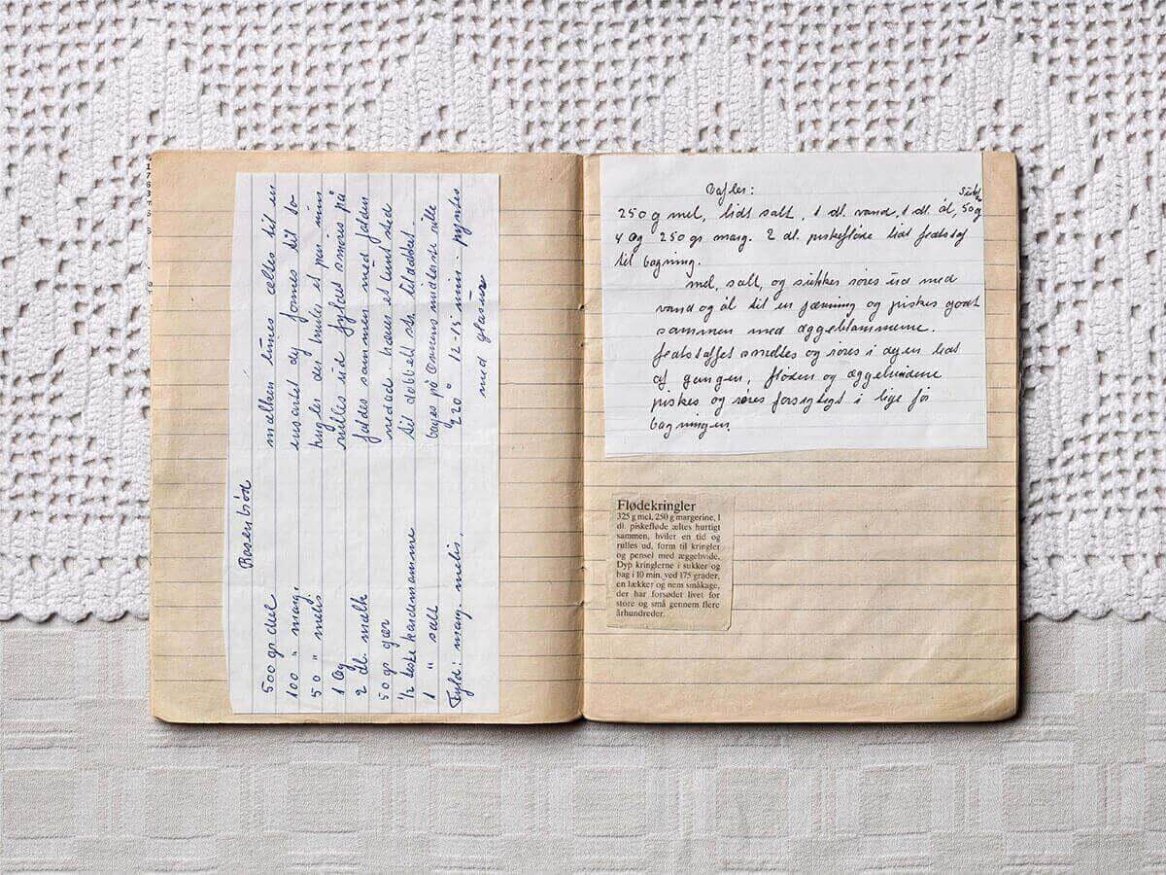 Rosenbrød
500 gr. mel
100 " marg.
50 " melis
1 æg
2 dl. mælk
50 gr gær
1/2 teske kardemomme
1 " salt
Fyld: marg. melis.
mælken lunes æltes til en
ensartet dej formes til to
kugler dej hviler et par min
rulles ud fyldet smøres på
foldes sammen med folden
nedad hæves et lunt sted
til dobbelt str. til dobbelt
bages på ovnens midterste rille
220° 12-15 min - pyntes
med glasur
Vafler:
250 g mel, lidt salt, 1 dl. vand, 1 dl. øl, 50 g
4 æg 250 gr marg. 2 dl. piskefløde lidt fedtstof
til bagning.
mel, salt, og sukker røres ud med
vand og øl til en jævning og piskes godt
sammen med æggeblommerne.
fedtstoffet smeltes og røres i dejen lidt
af gangen, fløden og æggehviderne
piskes og røres forsigtigt i lige før
bagningen
Flødekringler
325 g mel, 250 g margerine, 1
dl. piskefløde æltes hurtigt
sammen, hviler en tid og
rulles ud, form til kringler
og pensel med æggehvide.
Dyp kringlerne i sukker og
bag i 10 min. ved 175 grader,
en lækker og nem småkage,
der har forsødet livet for
store og små gennem flere
århundreder.